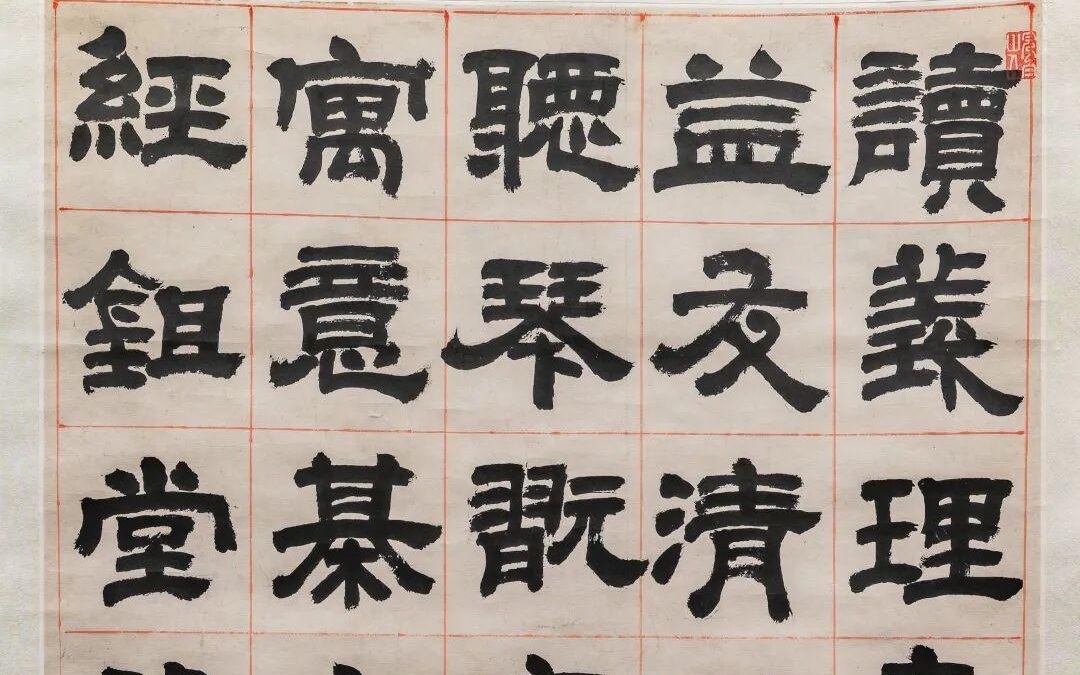 讀義理
益友清
聽琴翫
寓意棊
經鉏堂